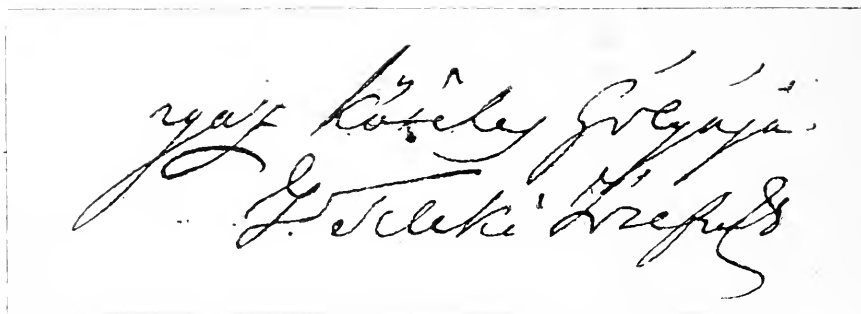 igaz köteles szolgája
G. Teleki József